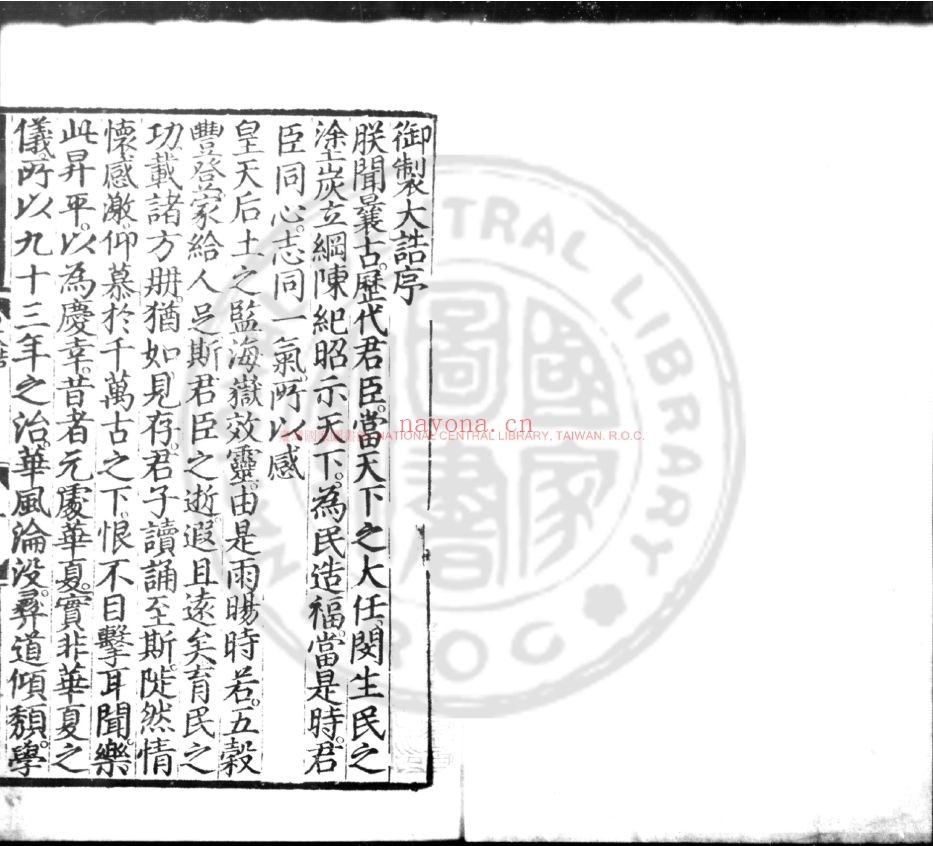 御製大誥序
朕聞曩古歷代君臣當天下之大任閔生民之
塗炭立綱陳紀昭示天下為民造福當是時君
臣同心志同一氣所以感
皇天后土之監海嶽效靈由是雨暘時若五穀
豐登家給人足斯君臣之逝遐且遠矣育民之
功載諸方冊猶如見存君子讀誦至斯陡然情
懷感激仰慕於千萬古之下恨不目擊耳聞樂
此昇平以為慶幸昔者元處華夏實非華夏之
儀所以九十三年之治華風淪没彛道傾頽學
nayona.cn
NATIONAL CENTRAL LIBRARY, TAIWAN. R.O.C.
國家圖書
CENTRAL LIBRARY
ROC